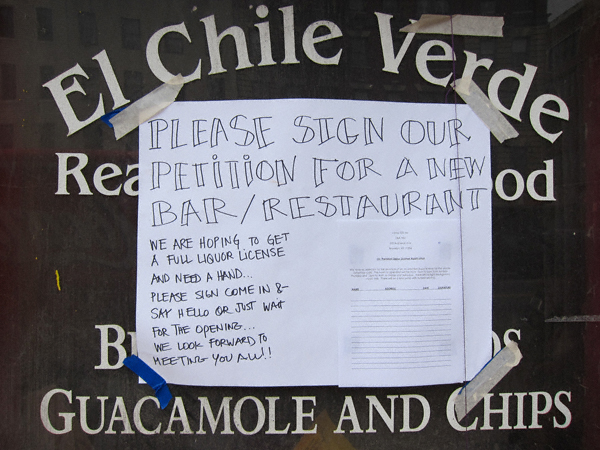 El Chile Verde
Rea ood
PLEASE SIGN OUR
PETITION FOR A NEW
BAR/RESTAURANT
WE ARE HOPING TO GET
A FULL LIQUOR LICENSE
AND NEED A HAND...
PLEASE SIGN COME IN &
SAY HELLO OR JUST WAIT
FOR THE OPENING...
WE LOOK FORWARD TO
MEETING YOU ALL!!
B os
GUACAMOLE AND CHIPS